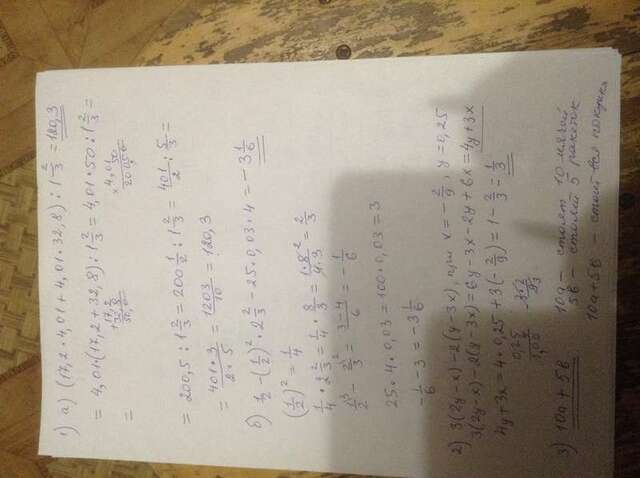 1) а) (17,2 * 4,01 + 4,01 * 32,8) : 1 2/3 = 120,3
= 4,01 * (17,2 + 32,8) : 1 2/3 = 4,01 * 50 : 1 2/3 =
+17,2
32,8
50,0
× 4,01
50
200,50
=
= 200,5 : 1 2/3 = 200 1/2 : 1 2/3 = 401/2 : 5/3 =
= 401 * 3 / 2 * 5 = 1203/10 = 120,3
б) 1/2 - (1/2)² * 2 2/3 - 25 * 0,03 * 4 = -3 1/6
(1/2)² = 1/4
1/4 * 2 2/3 = 1/4 * 8/3 = 1*8 ² / 4*3 = 2/3
1/2 ³ - 2/3 ² = 3-4/6 = -1/6
25 * 4 * 0,03 = 100 * 0,03 = 3
-1/6 - 3 = -3 1/6
2) 3(2y-x) - 2(y-3x), при x = -2/9, y = 0,25
3(2y-x) - 2(y-3x) = 6y - 3x - 2y + 6x = 4y + 3x
4y + 3x = 4 * 0,25 + 3(-2/9) = 1 - 2/3 = 1/3
0,25
1,00
3) 10а + 5в
10а - стоят 10 мячей
5в - стоят 5 ракеток
10а+5в - стоит вся покупка